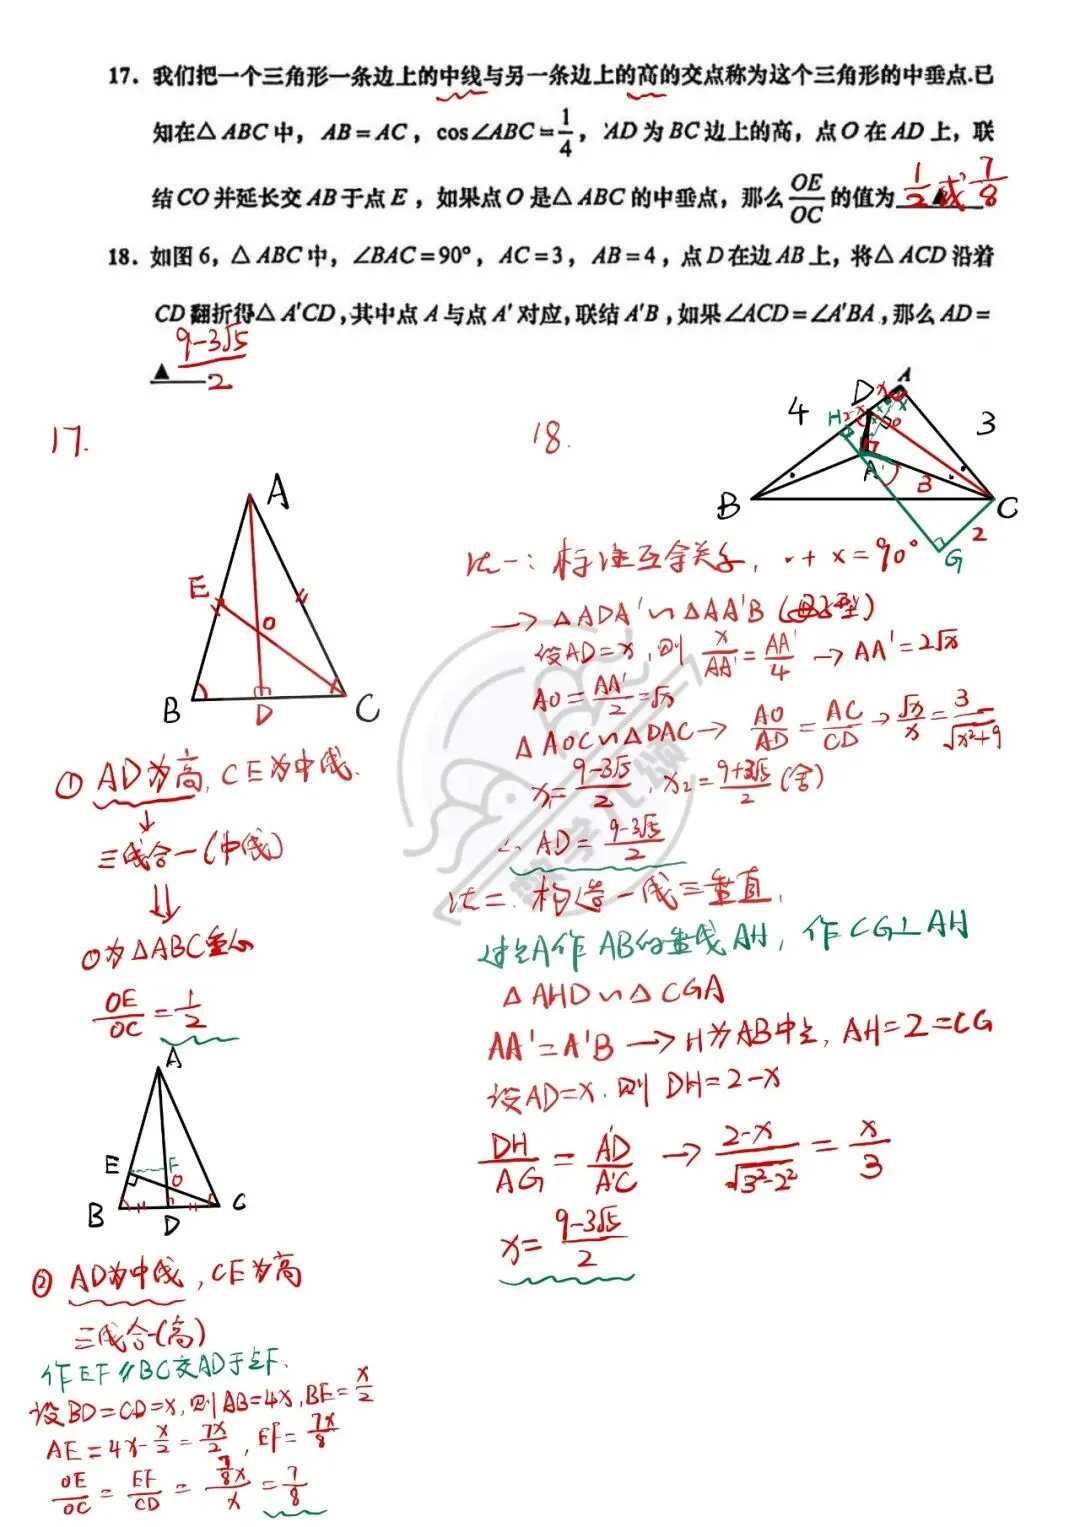 17. 我们把一个三角形一条边上的中线与另一条边上的高的交点称为这个三角形的中垂点.已
知在△ABC中，AB=AC，cos∠ABC=1/4，AD为BC边上的高，点O在AD上，联
结CO并延长交AB于点E，如果点O是△ABC的中垂点，那么OE/OC的值为▲ 1/2或7/8
18. 如图6，△ABC中，∠BAC=90°，AC=3，AB=4，点D在边AB上，将△ACD沿着
CD翻折得△A'CD，其中点A与点A'对应，联结A'B，如果∠ACD=∠A'BA，那么AD=
▲ (9-3√5)/2
17.
A
E
O
B
D
C
① AD为高, CE为中线.
↓
三线合一(中线)
⇓
O为△ABC重心
OE/OC=1/2
A
E
F
O
B
D
C
② AD为中线, CE为高
三线合一(高)
作EF∥BC交AD于点F.
设BD=CD=x, 则AB=4x, BE=x/2
AE=4x-x/2=7x/2, EF=7x/8
OE/OC=EF/CD=(7/8x)/x=7/8
18.
A
D
x
4
H
2-x
O
3
A'
B
3
C
2
G
法一: 标注互余关系, ·+×=90°
→△ADA'∽△AA'B (母子型)
设AD=x, 则 x/AA'=AA'/4→AA'=2√x
AO=AA'/2=√x
△AOC∽△DAC→ AO/AD=AC/CD→√x/x=3/√(x²+9)
x₁=(9-3√5)/2, x₂=(9+3√5)/2(舍)
∴AD=(9-3√5)/2
法二: 构造一线三垂直,
过点A作AB的垂线AH, 作CG⊥AH
△AHD∽△CGA
AA'=A'B→H为AB中点, AH=2=CG
设AD=x. 则DH=2-x
DH/AG=A'D/A'C→(2-x)/√(3²-2²)=x/3
x=(9-3√5)/2